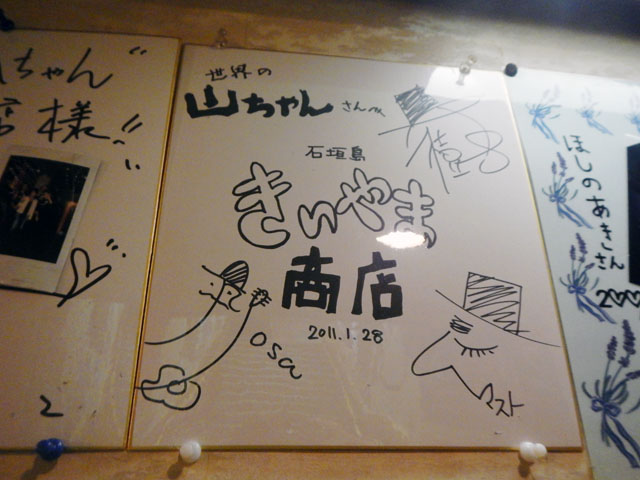 ちゃん
様!!
2
世界の
山ちゃん さん江
石垣島
きいやま
商店
2011.1.28
osa
マスト
ほしのあきさん